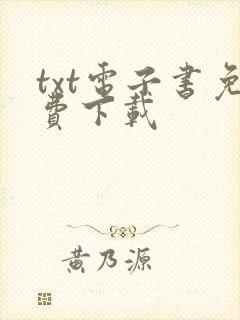 txt電子書免
費下載
黃乃源